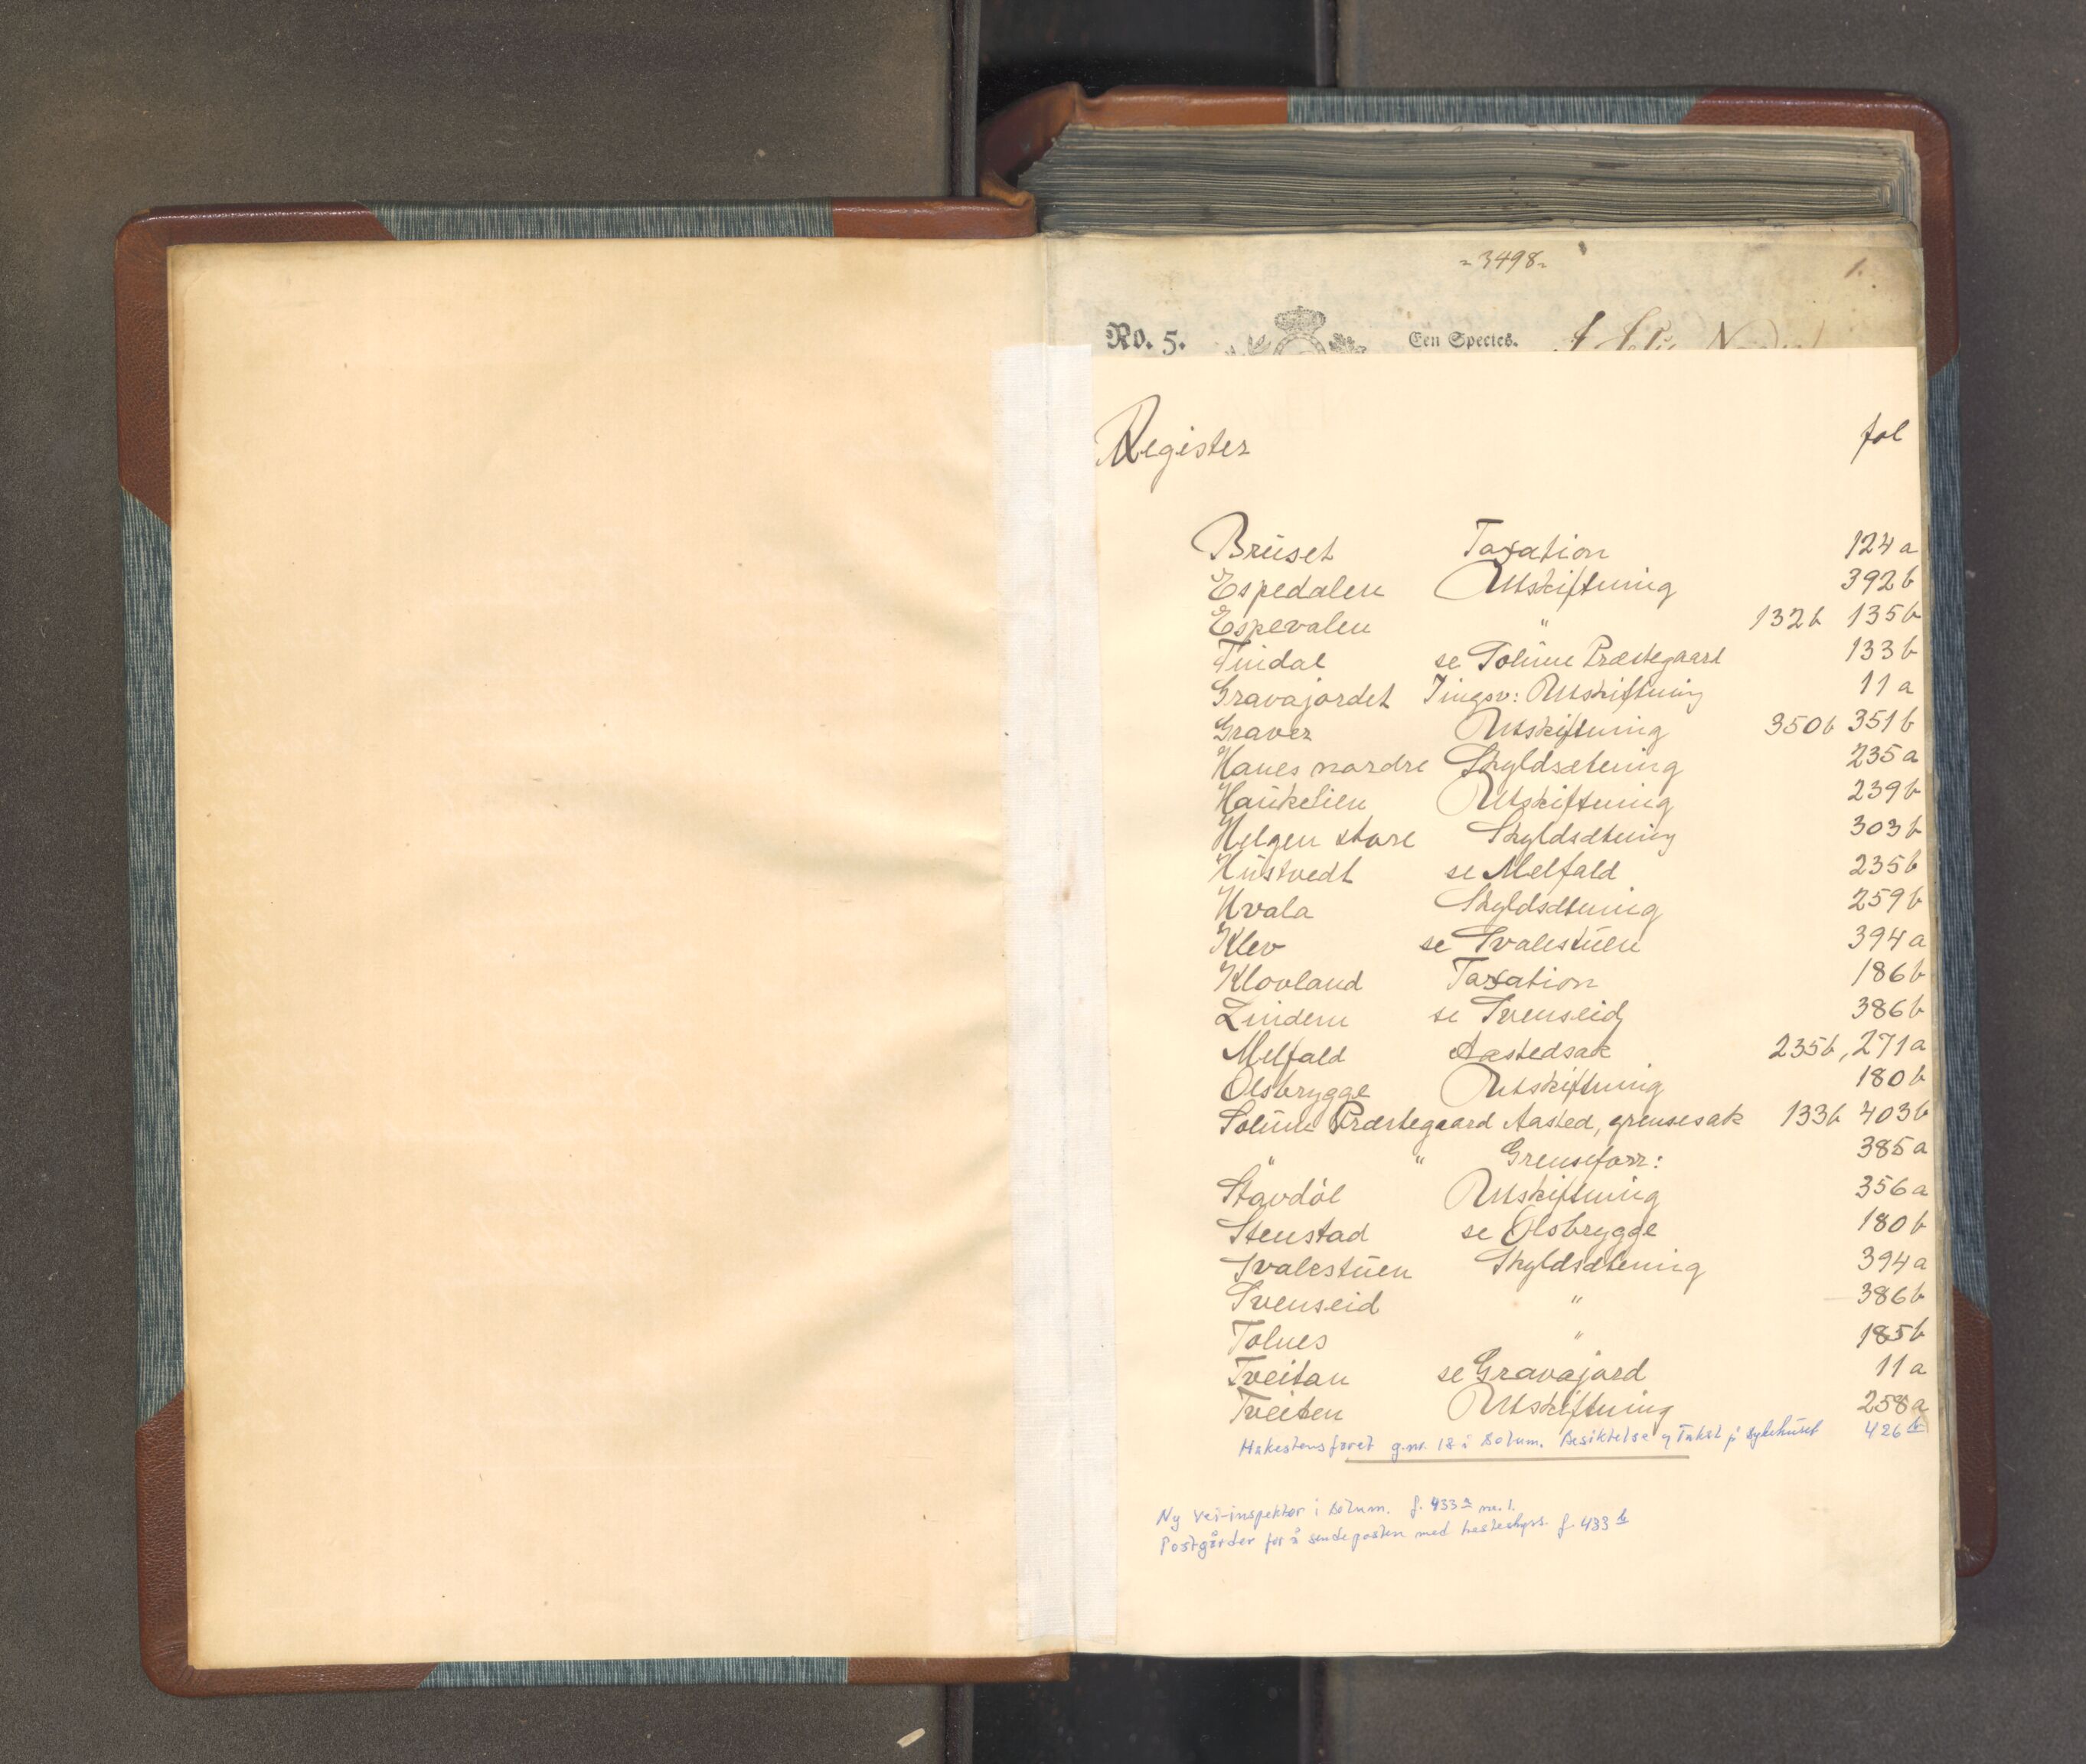 -3498-
1.
No. 5. Een Species.
Register fol
Bruset Taxation 124a
Espedalen Utskiftning 392b
Espevalen " 132b 135b
Findal se Solum Præstegaard 133b
Gravajordet Tingsv: Utskiftning 11a
Graver Utskiftning 350b 351b
Hanes nordre Skyldsætning 235a
Haukelien Utskiftning 239b
Helgen store Skyldsætning 303b
Hustvedt se Melfald 235b
Hvala Skyldsætning 259b
Klev se Svalestuen 394a
Klovland Taxation 186b
Lindem se Svenseid 386b
Melfald Aastedsak 235b, 271a
Olsbrygge Utskiftning 180b
Solum Præstegaard Aasted, grensesak 133b 403b
" " Grenseforr: 385a
Stavdol Utskiftning 356a
Stenstad se Olsbrygge 180b
Svalestuen Skyldsætning 394a
Svenseid " 386b
Tolnes " 185b
Tveitan se Gravajord 11a
Tveiten Utskiftning 258a
g.nr. 18 i Solum. Besiktelse og Takst på sykehuset 426b
Ny vei-inspektør i Solum. f. 433a nr. 1.
Postgårder for å sende posten med hesteskyss. f. 433b